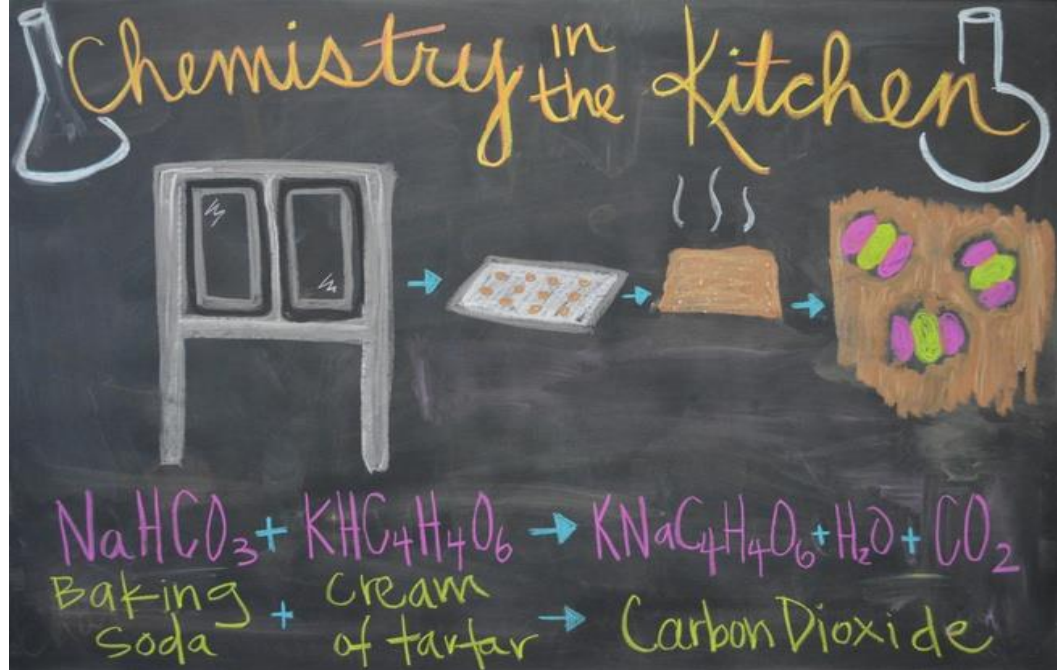 Chemistry in the Kitchen
NaHCO₃ + KHC₄H₄O₆ → KNaC₄H₄O₆ + H₂O + CO₂
Baking Soda + Cream of tartar → Carbon Dioxide